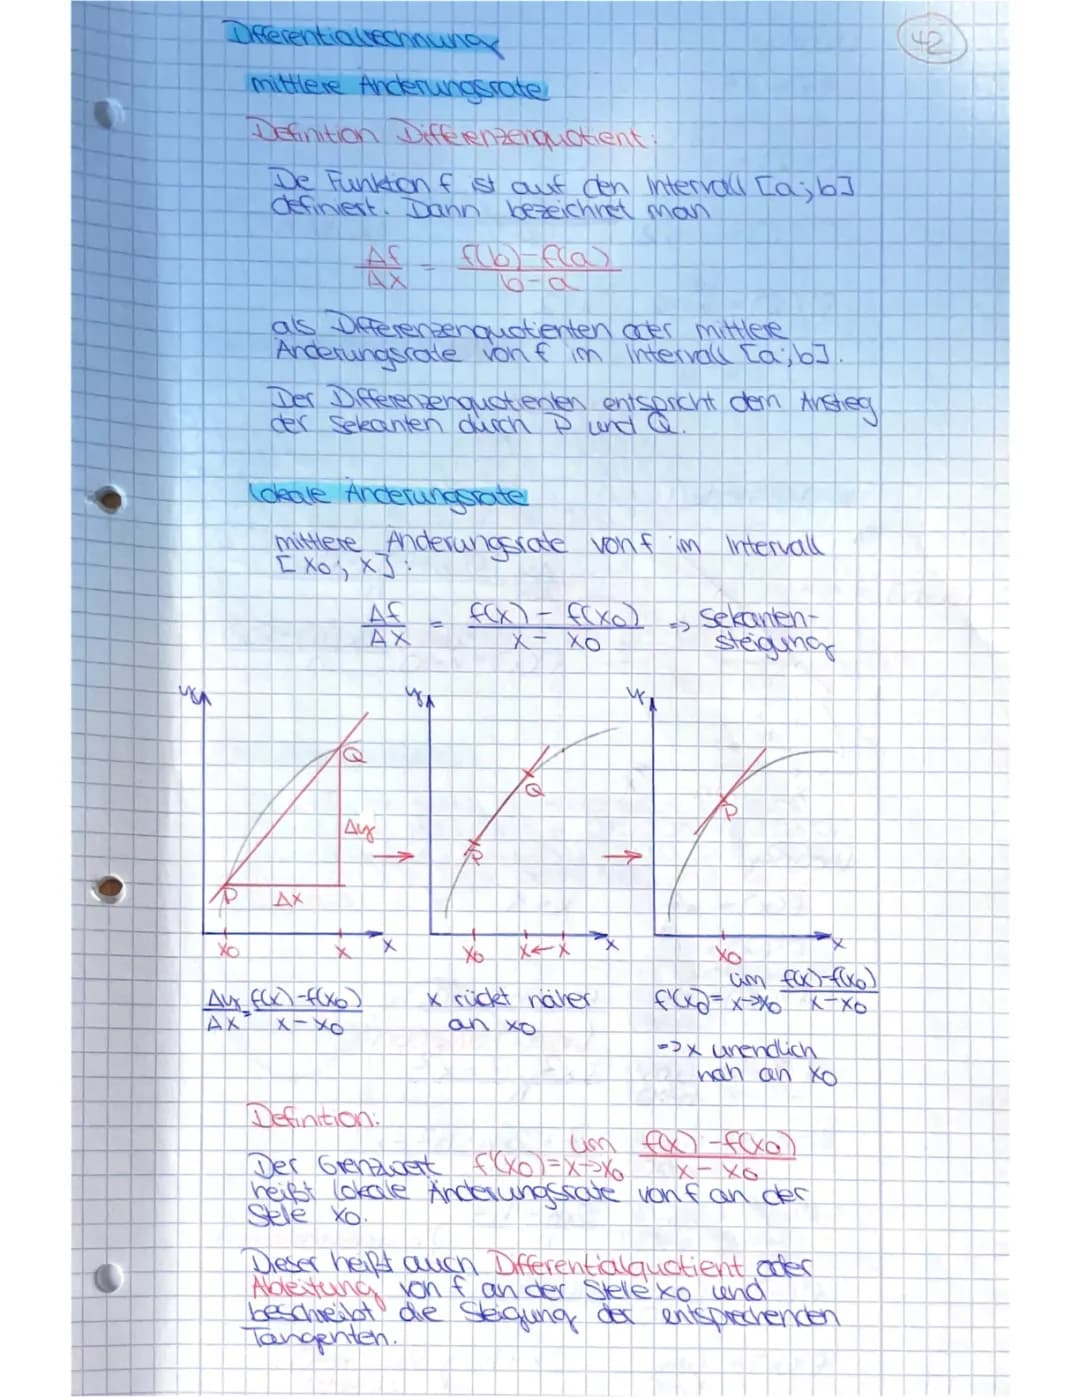 Differentialrechnung
42
mittlere Änderungsrate
Definition Differenzenquotient:
Die Funktion f ist auf den Intervall [a;b]
definiert. Dann bezeichnet man
Δf/Δx = (f(b)-f(a))/(b-a)
als Differenzenquotienten oder mittlere
Änderungsrate von f im Intervall [a;b].
Der Differenzenquotienten entspricht dem Anstieg
der Sekanten durch P und Q.
lokale Änderungsrate
mittlere Änderungsrate von f im Intervall
[x0; x]:
Δf/Δx = (f(x) - f(x0))/(x - x0) => Sekanten-
steigung
y
Q
Δy
P
Δx
x0
x
x
y
Q
P
x0
x←x
x
y
P
x0
x
Δy/Δx = (f(x)-f(x0))/(x-x0)
x rückt näher
an x0
f'(x0) = lim x→x0 (f(x)-f(x0))/(x-x0)
=> x unendlich
nah an x0
Definition:
Der Grenzwert f'(x0) = lim x→x0 (f(x)-f(x0))/(x-x0)
heißt lokale Änderungsrate von f an der
Stelle x0.
Dieser heißt auch Differentialquotient oder
Ableitung von f an der Stelle x0 und
beschreibt die Steigung der entsprechenden
Tangenten.